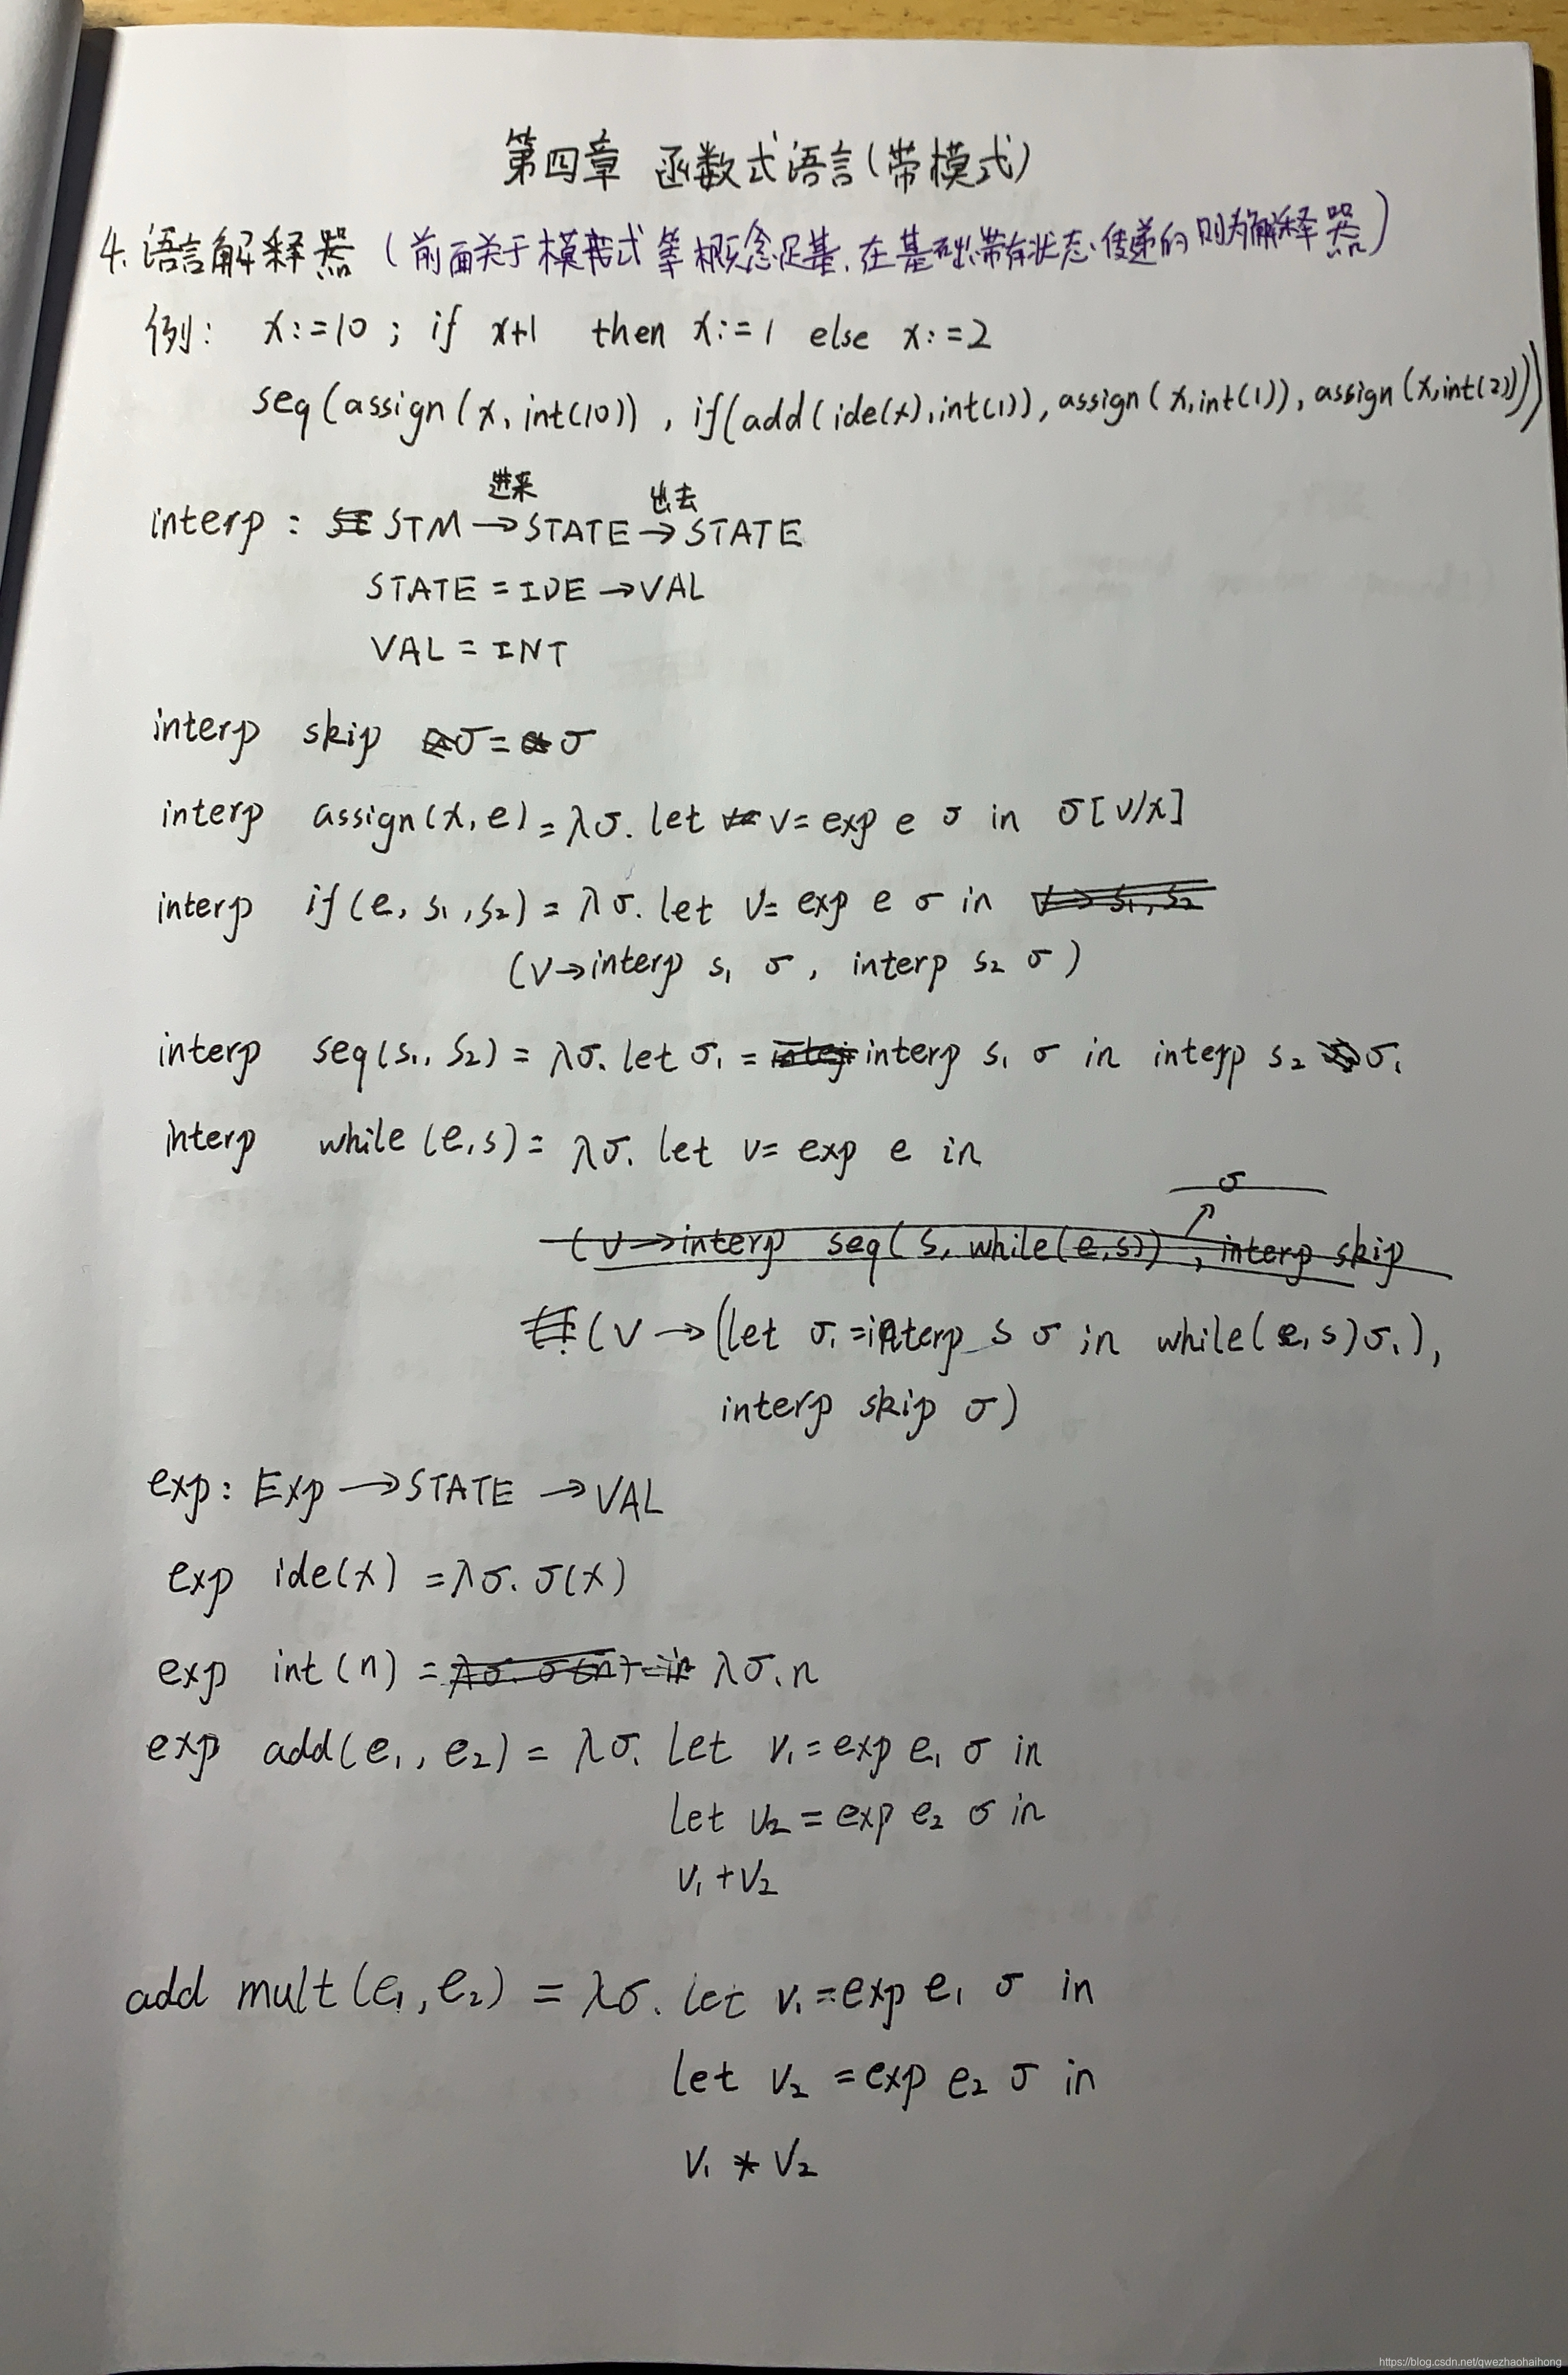 第四章 函数式语言(带模式)
4. 语言解释器 (前面关于模式等概念是基, 在基础带有状态传递的则为解释器)
例: x:=10 ; if x+1 then x:=1 else x:=2
seq(assign(x, int(10)) , if(add(ide(x), int(1)), assign(x, int(1)), assign(x, int(2))))
进来 出去
interp : STM → STATE → STATE
STATE = IDE → VAL
VAL = INT
interp skip σ = σ
interp assign(x, e) = λσ. let v = exp e σ in σ[v/x]
interp if(e, s₁, s₂) = λσ. let v = exp e σ in v → s₁, s₂
(v → interp s₁ σ , interp s₂ σ )
interp seq(s₁, s₂) = λσ. let σ₁ = interp s₁ σ in interp s₂ σ₁
interp while (e, s) = λσ. let v = exp e in
σ
(v → interp seq( s, while(e,s)) , interp skip
(v → (let σ₁ = interp s σ in while(e, s) σ₁),
interp skip σ)
exp : Exp → STATE → VAL
exp ide(x) = λσ. σ(x)
exp int(n) = λσ. n
exp add(e₁, e₂) = λσ. let v₁ = exp e₁ σ in
let v₂ = exp e₂ σ in
v₁ + v₂
add mult(e₁, e₂) = λσ. let v₁ = exp e₁ σ in
let v₂ = exp e₂ σ in
v₁ * v₂
https://blog.csdn.net/qwezhaohaihong